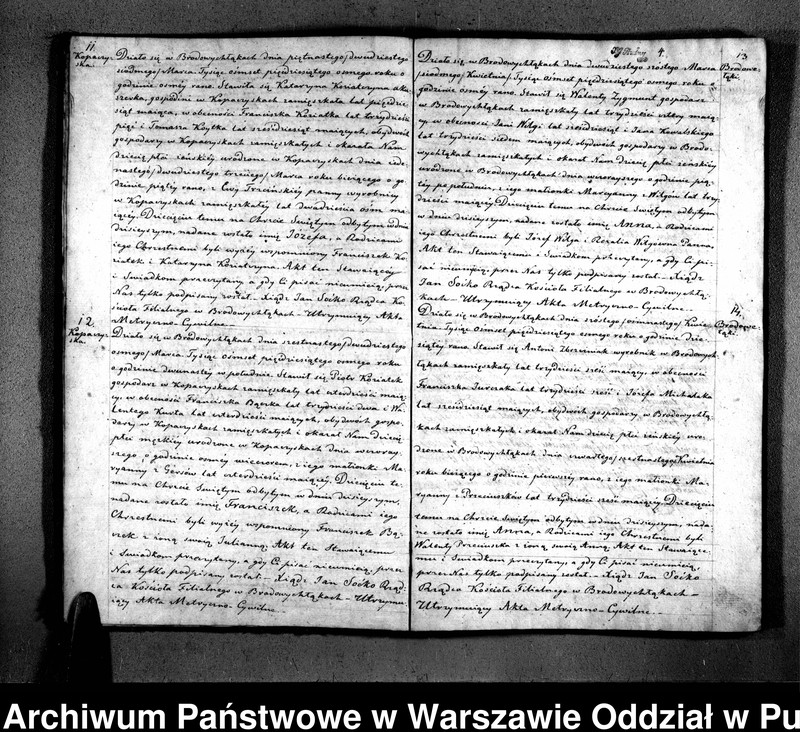 11.
Kopaczy-
ska.
Działo się w Brodowychłąkach dnia piętnastego/dwudziestego
siódmego/Marca Tysiąc ośmset pięćdziesiątego ósmego roku o
godzinie ósmej rano. Stawiła się Katarzyna
gospodini w Kopaczyskach zamieszkała lat pięćdzie-
siąt mająca, w obecności Franciszka Koziatka lat trzydzieści
pięć i Tomasza Koytka lat sześćdziesiąt mających, obydwóch
gospodarzy w Kopaczyskach zamieszkałych i okazała Nam
dziecię płci żeńskiej urodzone w Kopaczyskach dnia jede-
nastego/dwudziestego trzeciego/Marca roku bieżącego o go-
dzinie piątej rano, z Ewy Trzcińskiej panny wyrobnicy
w Kopaczyskach zamieszkałej lat dwadzieścia ośm ma-
jącej. Dziecięciu temu na Chrzcie Świętym odbytym w dniu
dzisiejszym, nadane zostało imię Józefa, a Rodzicami
jego Chrzestnemi byli wyżej wspomniony Franciszek Ko-
ziatek i Katarzyna Koziatczyna. Akt ten Stawiającej
i Świadkom przeczytany, a gdy Ci pisać nieumieją, przez
Nas tylko podpisany został. Xiądz Jan Sośko Rządca Ko-
ścioła Filialnego w Brodowychłąkach – Utrzymujący Akta
Metryczno-Cywilne
12.
Kopaczy-
ska.
Działo się w Brodowychłąkach dnia szesnastego/dwudziestego
ósmego/Marca Tysiąc ośmset pięćdziesiątego ósmego roku
o godzinie dwunastej w południe. Stawił się Piotr Koziatek
gospodarz w Kopaczyskach zamieszkały lat czterdzieści mają-
cy, w obecności Franciszka Bączka lat trzydzieści dwa i Wa-
lentego lat czterdzieści mających, obydwóch gospo-
darzy w Kopaczyskach zamieszkałych i okazał Nam dziecię
płci męzkiej urodzone w Kopaczyskach dnia wczoraj-
szego, o godzinie ósmej wieczorem, z jego małżonki Ma-
ryanny z Gersów lat czterdzieści mającej. Dziecięciu te-
mu na Chrzcie Świętym odbytym w dniu dzisiejszym,
nadane zostało imię Franciszek, a Rodzicami jego
Chrzestnemi byli wyżej wspomniony Franciszek Bą-
czek z żoną swoją Julianną. Akt ten Stawiającemu
i Świadkom przeczytany, a gdy Ci pisać nieumieją, przez
Nas tylko podpisany został – Xiądz Jan Sośko Rząd-
ca Kościoła Filialnego w Brodowychłąkach – Utrzymu-
jący Akta Metryczno-Cywilne
4.
13
Brodowe-
łąki.
Działo się w Brodowychłąkach dnia dwudziestego szóstego Marca
/siódmego/Kwietnia/Tysiąc ośmset pięćdziesiątego ósmego roku o
godzinie ósmej rano. Stawił się Walenty Zygmunt gospodarz
w Brodowychłąkach zamieszkały lat trzydzieści cztery mają-
cy, w obecności Jana Wilgi lat sześćdziesiąt i Jana Kowalskiego
lat trzydzieści siedem mających, obydwóch gospodarzy w Brodo-
wychłąkach zamieszkałych i okazał Nam dziecię płci żeńskiej
urodzone w Brodowychłąkach dnia wczorajszego o godzinie pią-
tej po południu, z jego małżonki Maryanny z Wilgów lat trzy-
dzieści mającej. Dziecięciu temu na Chrzcie Świętym odbytym
w dniu dzisiejszym, nadane zostało imię Anna, a Rodzicami
jego Chrzestnemi byli Józef Wilga i Rozalia Wilgówna Panna.
Akt ten Stawiającemu i Świadkom przeczytany, a gdy Ci pi-
sać nieumieją, przez Nas tylko podpisany został – Xiądz
Jan Sośko Rządca Kościoła Filialnego w Brodowychłą-
kach – Utrzymujący Akta Metryczno-Cywilne
14.
Brodowe-
łąki.
Działo się w Brodowychłąkach dnia szóstego/ośmnastego/Kwie-
tnia Tysiąc ośmset pięćdziesiątego ósmego roku o godzinie dzie-
siątej rano. Stawił się Antoni wyrobnik w Brodowych-
łąkach zamieszkały lat trzydzieści sześć mający, w obecności
Franciszka Jurczaka lat trzydzieści sześć i Józefa Michalaka
lat sześćdziesiąt mających, obydwóch gospodarzy, w Brodowychłą-
kach zamieszkałych i okazał Nam dziecię płci żeńskiej uro-
dzone w Brodowychłąkach dnia czwartego/szesnastego/Kwietnia
roku bieżącego o godzinie pierwszej rano, z jego małżonki Ma-
ryanny z Przeciuszków lat trzydzieści sześć mającej. Dziecięciu
temu na Chrzcie Świętym odbytym w dniu dzisiejszym, nada-
ne zostało imię Anna, a Rodzicami jego Chrzestnemi byli
Walenty Przeciuszka z żoną swoją Anną. Akt ten Stawiające-
mu i Świadkom przeczytany, a gdy Ci pisać nieumieją,
przez Nas tylko podpisany został – Xiądz Jan Sośko
Rządca Kościoła Filialnego w Brodowychłąkach –
Utrzymujący Akta Metryczno-Cywilne
Archiwum Państwowe w Warszawie Oddział w Pu